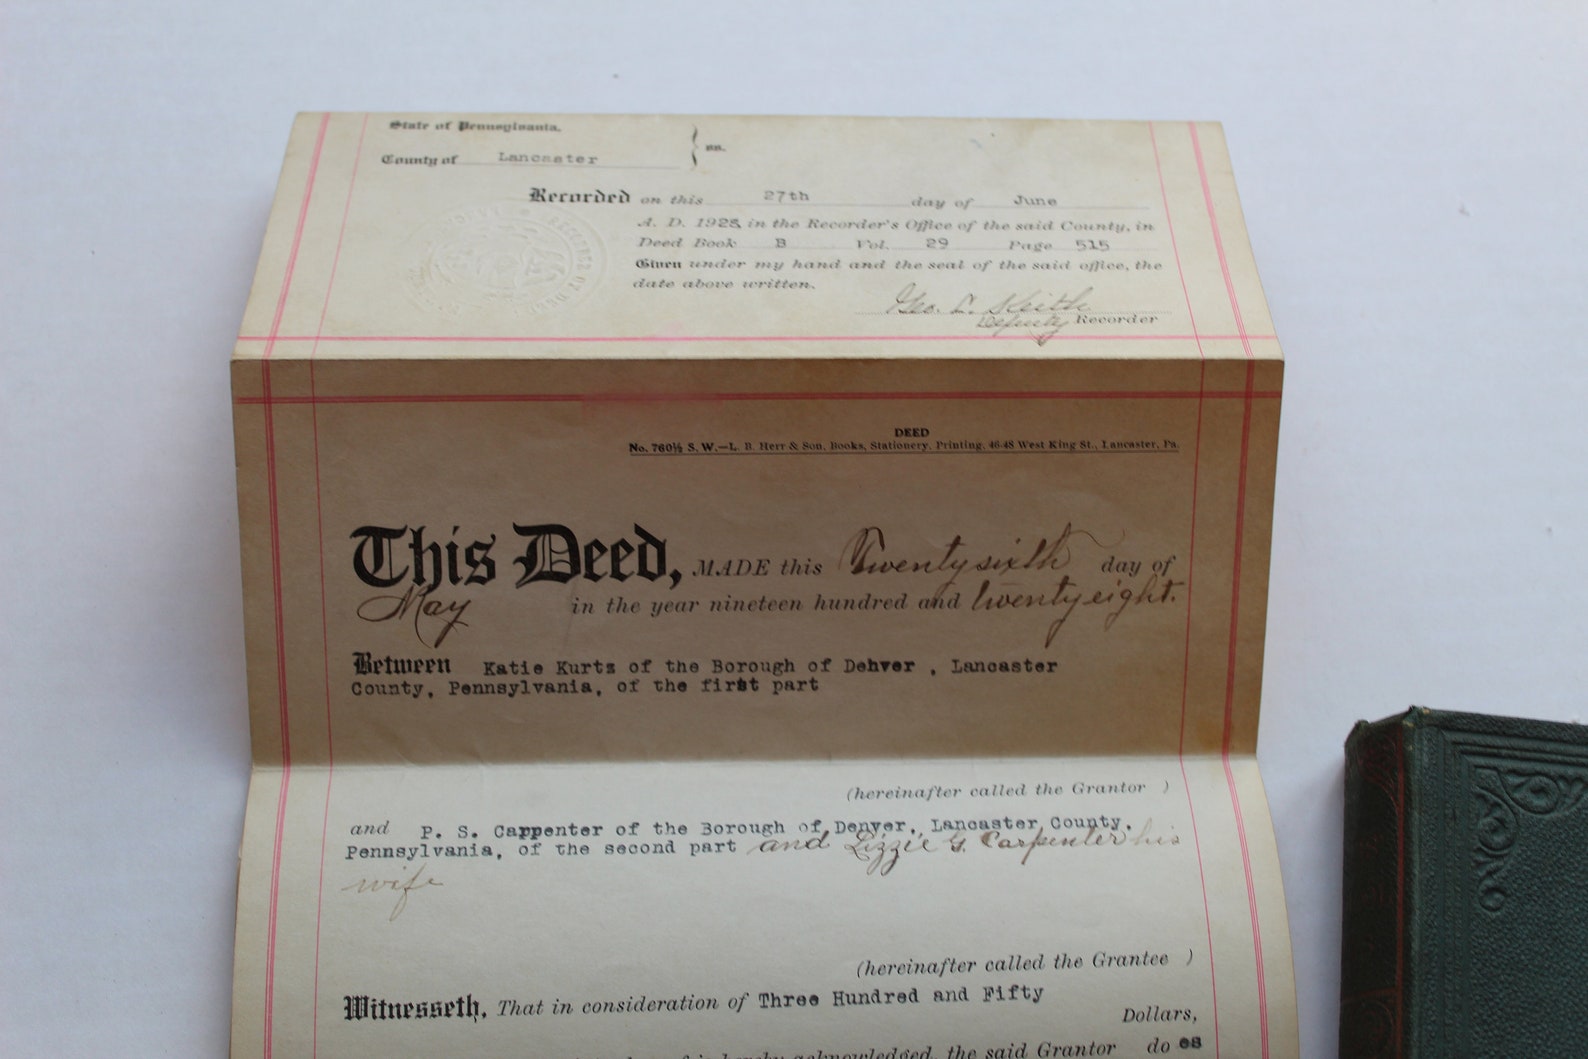 State of Pennsylvania.
County of Lancaster } ss.
Recorded on this 27th day of June
A. D. 1928, in the Recorder's Office of the said County, in
Deed Book B Vol. 29 Page 515
Given under my hand and the seal of the said office, the
date above written.
Geo. L. Keith
Deputy Recorder
DEED
No. 760½ S. W.—L. B. Herr & Son, Books, Stationery, Printing, 46-48 West King St., Lancaster, Pa.
This Deed, MADE this Twenty sixth day of
May in the year nineteen hundred and twenty eight.
Between Katie Kurtz of the Borough of Dehver , Lancaster
County, Pennsylvania, of the first part
(hereinafter called the Grantor )
and P. S. Carpenter of the Borough of Denver, Lancaster County,
Pennsylvania, of the second part and Lizzie G. Carpenter his
wife
(hereinafter called the Grantee )
Witnesseth, That in consideration of Three Hundred and Fifty
Dollars,
hereby acknowledged, the said Grantor do es